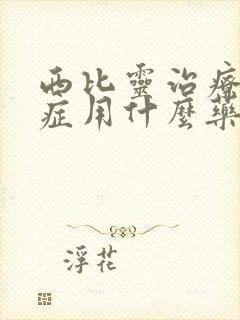 西比靈治療
症用什麼藥
浮花